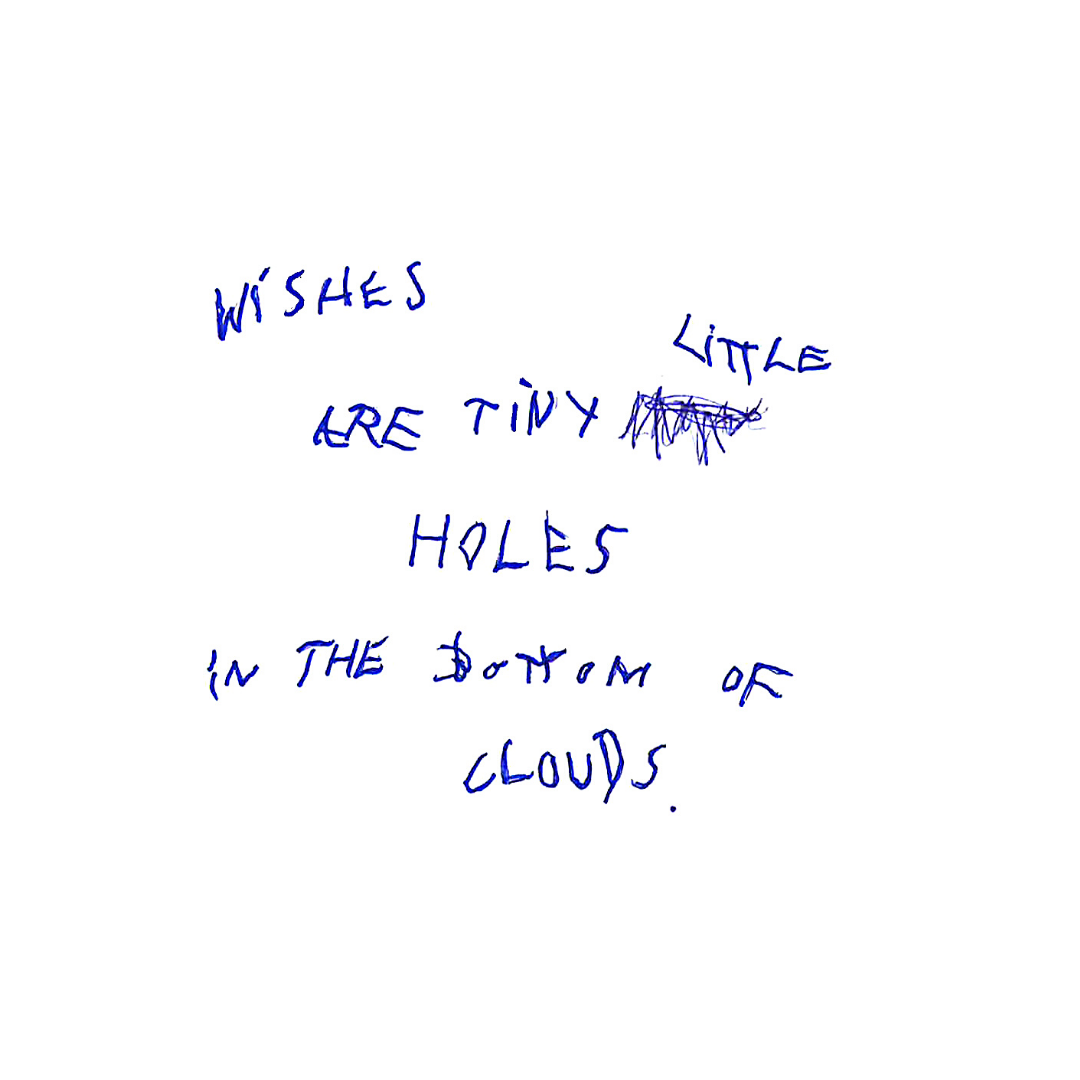 WISHES
LITTLE
ARE TINY
HOLES
IN THE BOTTOM OF
CLOUDS.